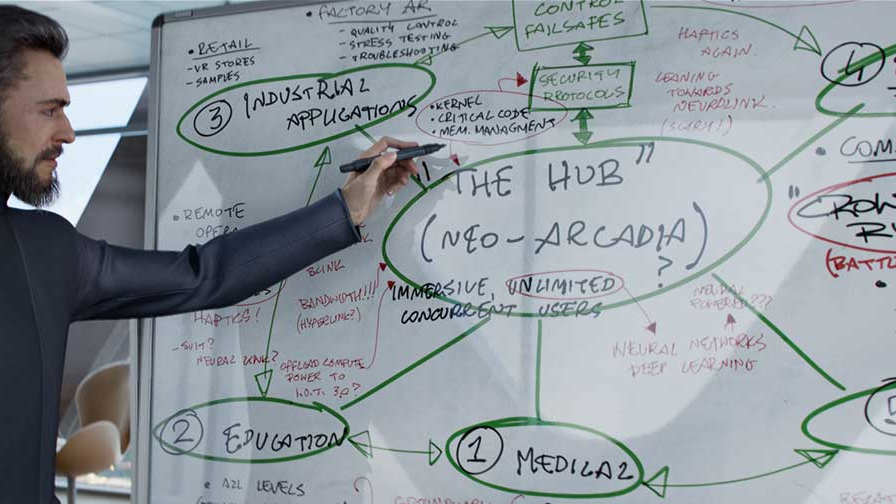 • FACTORY AR
- QUALITY CONTROL
- STRESS TESTING
- TROUBLESHOOTING
• RETAIL
- VR STORES
- SAMPLES
CONTROL
FAILSAFES
HAPTICS
AGAIN.
LEANING
TOWARDS
NEURALINK.
(SCARY!)
SECURITY
PROTOCOLS
③ INDUSTRIAL
APPLICATIONS
• KERNEL
• CRITICAL CODE
• MEM. MANAGMENT
④
"THE HUB"
(NEO-ARCADIA)
?
IMMERSIVE, UNLIMITED
CONCURRENT USERS
• COM
"CROW
(BATTL
• REMOTE
OPER
BLINK
BANDWIDTH!!!
(HYPERLINK?)
HAPTICS!
- SUIT?
NEURAL LINK?
OFFLOAD COMPUTE
POWER TO
I.O.T. 3.0?
NEURAL
POWERED???
NEURAL NETWORKS
DEEP LEARNING
② EDUCATION
• ALL LEVELS
① MEDICAL